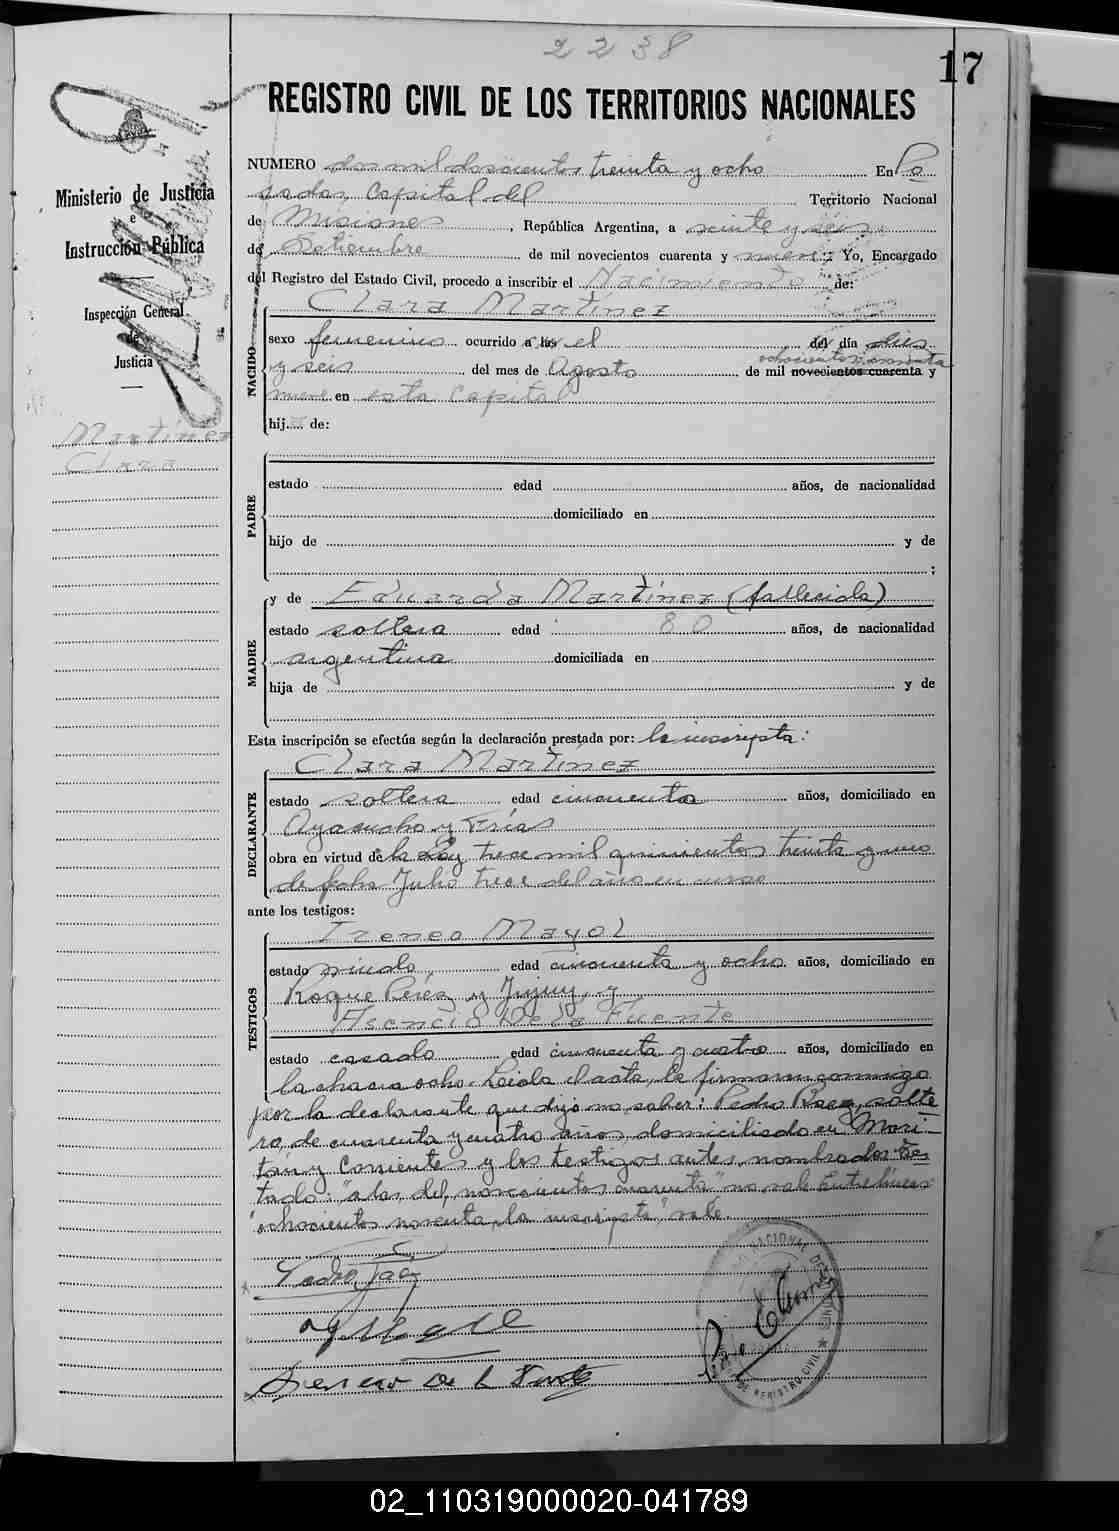 2238
17
REGISTRO CIVIL DE LOS TERRITORIOS NACIONALES
Ministerio de Justicia
e
Instrucción Pública
Inspección General
de
Justicia
Martínez
Clara
NUMERO dos mil doscientos treinta y ocho En Po
sadas, Capital del Territorio Nacional
de Misiones, República Argentina, a veinte y seis
de Setiembre de mil novecientos cuarenta y nueve: Yo, Encargado
del Registro del Estado Civil, procedo a inscribir el Nacimiento de:
NACIDO
Clara Martínez
sexo femenino ocurrido a las el del día diez
ochocientos noventa
y seis del mes de Agosto de mil novecientos cuarenta y
nueve en esta Capital
hija de:
PADRE
estado edad años, de nacionalidad
domiciliado en
hijo de y de
;
MADRE
y de Eduarda Martínez (fallecida)
estado soltera edad 80 años, de nacionalidad
argentina domiciliada en
hija de y de
Esta inscripción se efectúa según la declaración prestada por: la inscripta:
DECLARANTE
Clara Martínez
estado soltera edad cincuenta años, domiciliado en
Ayacucho y Frías
obra en virtud de la Ley trece mil quinientos treinta y uno
de fecha Julio trece del año en curso
ante los testigos:
TESTIGOS
Ireneo Mayol
estado viudo, edad cincuenta y ocho años, domiciliado en
Roque Pérez y Jujuy, y
Asencio De la Fuente
estado casado edad cincuenta y cuatro años, domiciliado en
la chacra ocho. Leida el acta, la firmaron conmigo
por la declarante que dijo no saber: Pedro Baez, solte
ro, de cuarenta y cuatro años, domiciliado en
y Corrientes y los testigos antes nombrados. Tes
tado: "a las, del, novecientos cuarenta" no vale. Entre líneas:
"ochocientos noventa, la inscripta" vale.
02_110319000020-041789